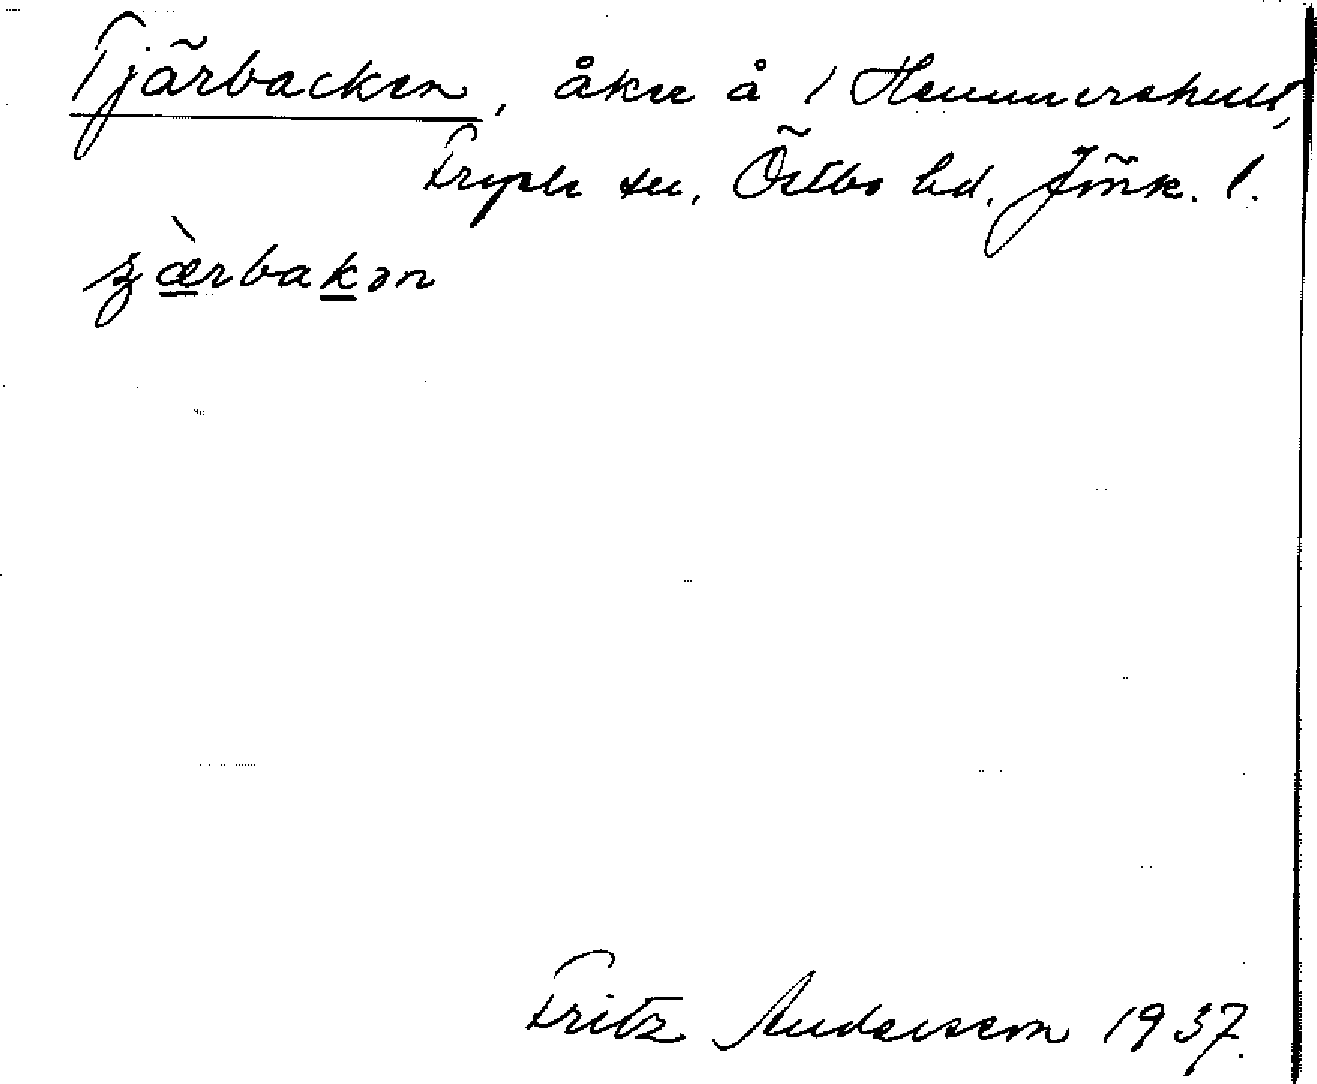 Tjärbacken, åker å 1 Hammershult,
Fryele sn, Östbo hd, Jönk. l.
ʒæ̀rbakən
Fritz Andersson 1937.